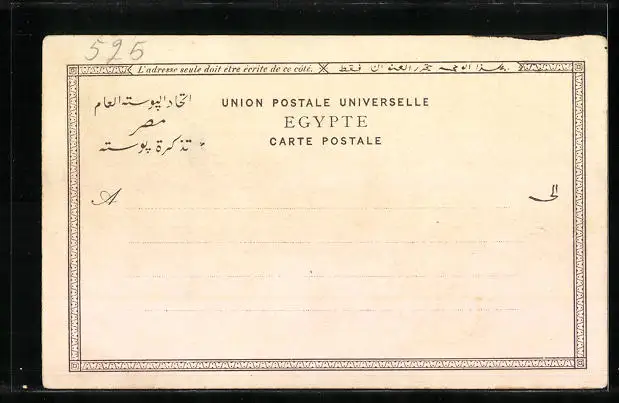 525
L'adresse seule doit être écrite de ce côté. هذا الوجه يتحرر العنوان فقط
اتحاد البوسته العام
مصر
تذكرة بوسته
UNION POSTALE UNIVERSELLE
EGYPTE
CARTE POSTALE
A الى